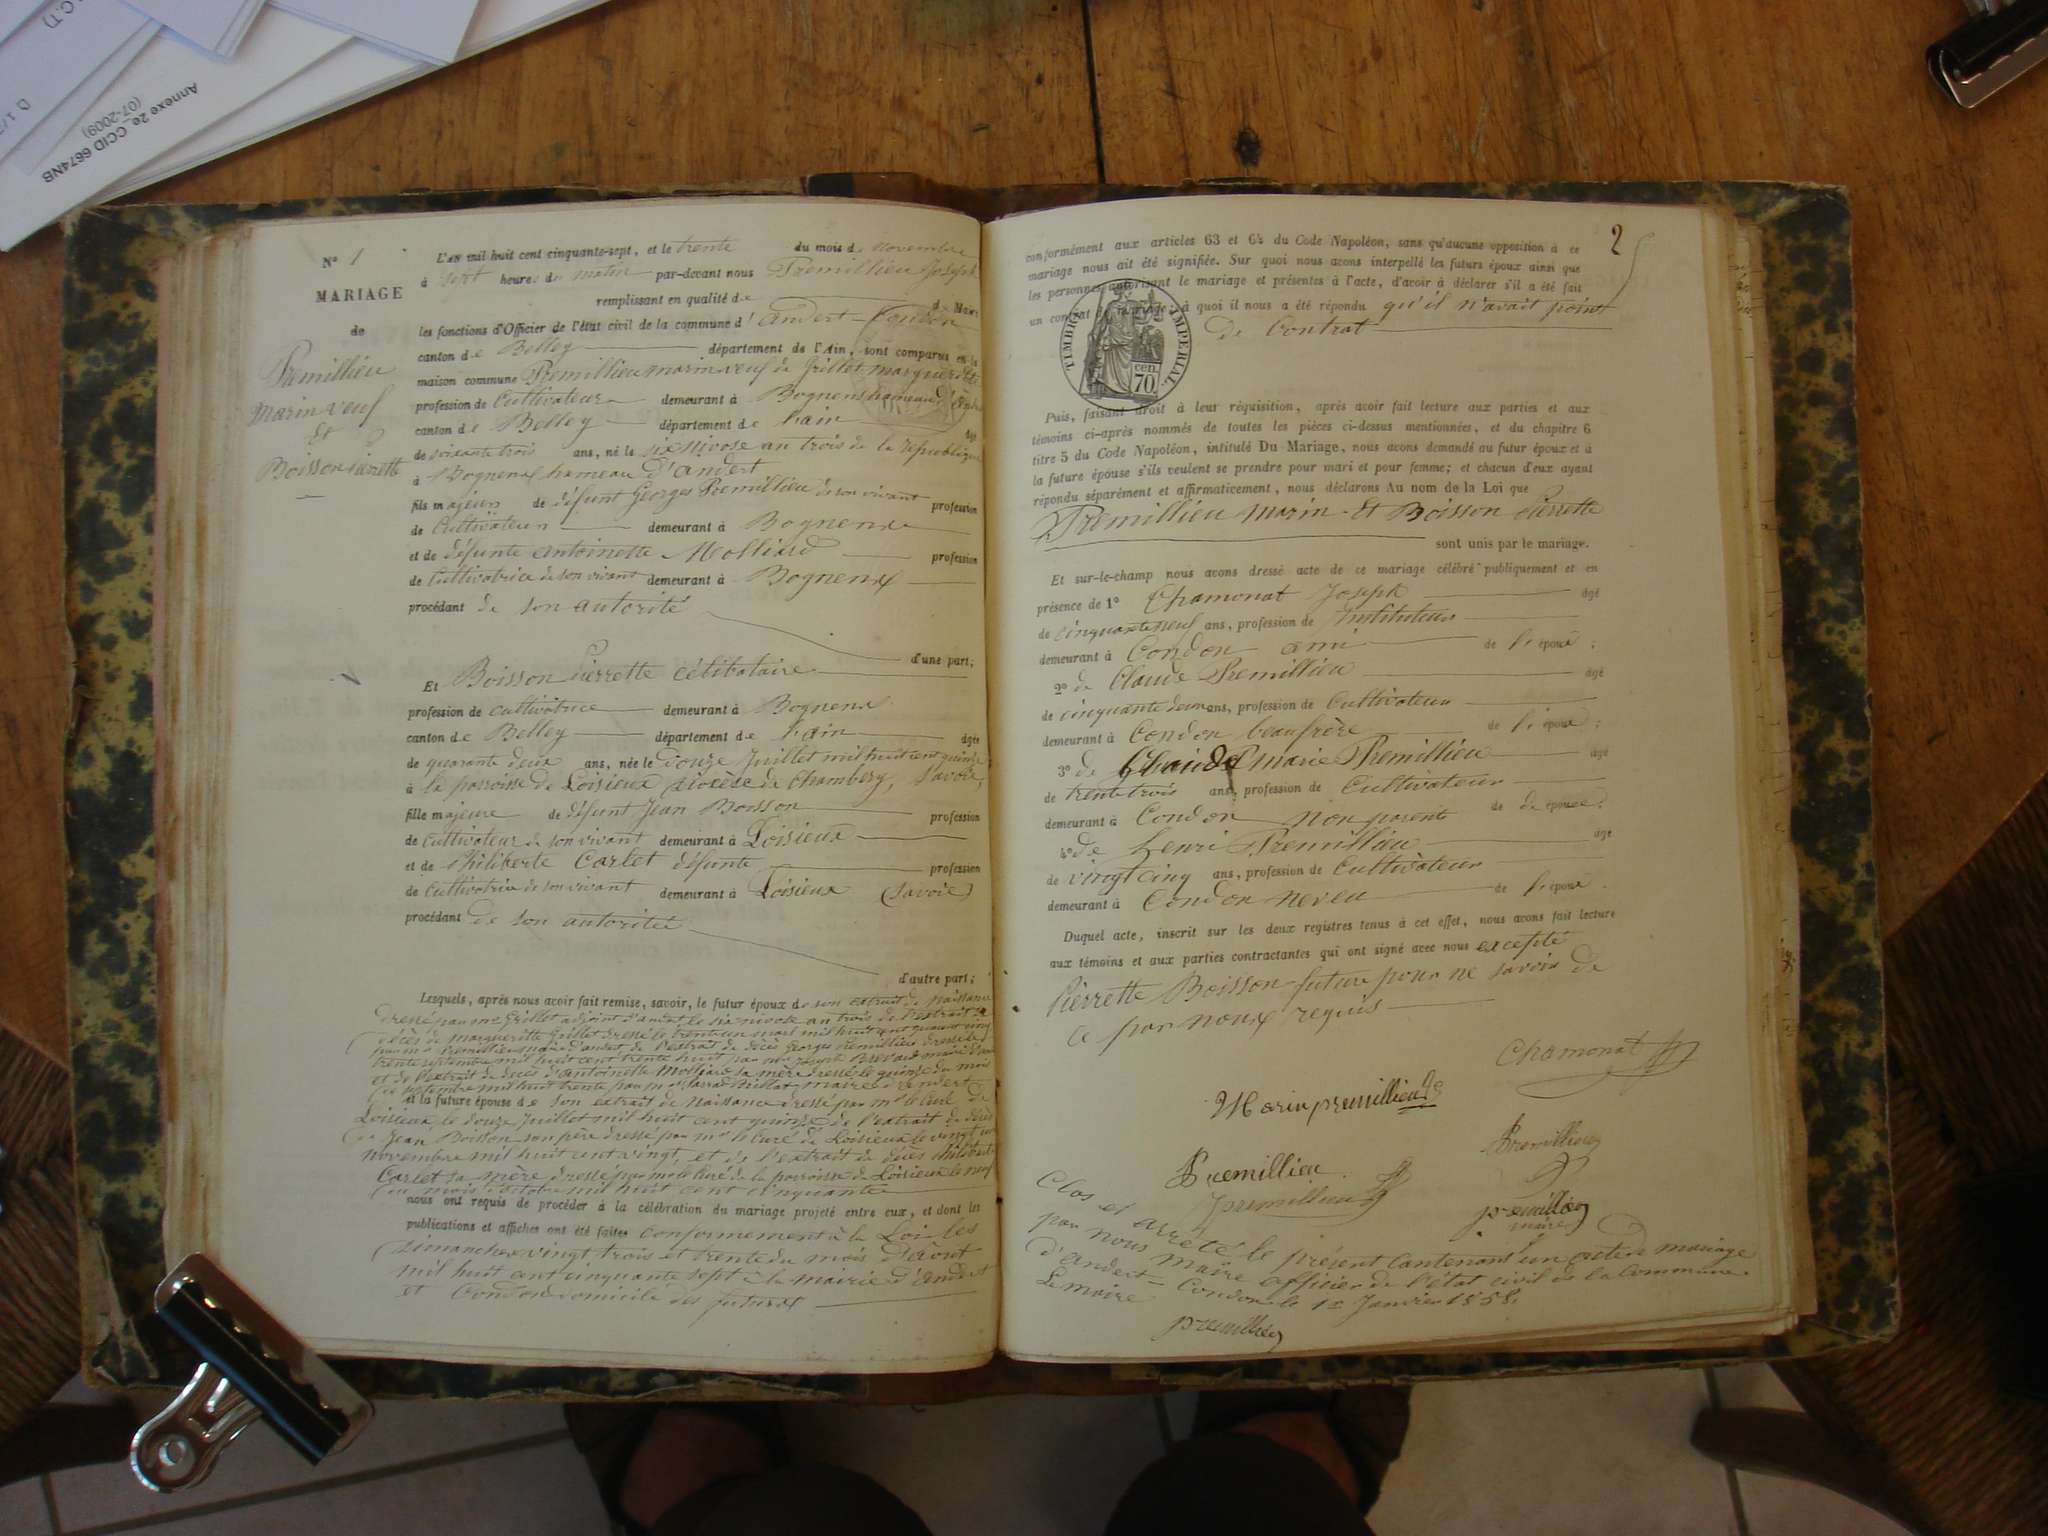 C.T)
D 1/
Annexe 2e_CCID 6674NB
(07-2009)
N° 1
MARIAGE
de
Premillieu
Marin veuf
Et
Boisson Pierrette
L'AN mil huit cent cinquante-sept, et le trente du mois de novembre
à sept heures du matin par-devant nous Premillieu Joseph
remplissant en qualité de Maire
les fonctions d'Officier de l'état civil de la commune d'Andert-Condon
canton de Belley département de l'Ain, sont comparus en la
maison commune Premillieu marin veuf de Grillet marguerite
profession de Cultivateur demeurant à Bognens hameau d'Andert
canton de Belley département de l'ain agé
de soixante trois ans, né le six nivose an trois de la republique
à Bognens hameau d'andert
fils majeur de défunt Georges Premillieu de son vivant profession
de Cultivateur demeurant à Bognens
et de défunte antoinette Molliard profession
de Cultivatrice de son vivant demeurant à Bognens
procédant de son autorité
d'une part;
Et Boisson Pierrette célibataire
profession de cultivatrice demeurant à Bognens
canton de Belley département de l'ain agée
de quarante deux ans, née le douze Juillet mil huit cent quinze
à la parroisse de Loisieux diocèse de Chambery, Savoie,
fille majeure de défunt Jean Boisson profession
de Cultivateur de son vivant demeurant à Loisieux
et de Philiberte Carlet défunte profession
de Cultivatrice de son vivant demeurant à Loisieux (Savoie)
procédant de son autorité
d'autre part;
Lesquels, après nous avoir fait remise, savoir, le futur époux de son extrait de naissance
dressé par mr Grillet adjoint d'andert le six nivose an trois de l'extrait de
décès de margueritte Grillet dressé le trente un mars mil huit cent quarante cinq
par mr Premillieu maire d'andert de l'extrait de décès Georges Premillieu dressé le
trente septembre mil huit cent trente huit par mr Brevard maire
et de l'extrait de décès d'antoinette Molliard sa mère dressé le quinze du mois
de septembre mil huit trente par mr Brillat maire d'andert
et la future épouse de son extrait de naissance dressé par mr le curé de
Loisieux le douze Juillet mil huit cent quinze de l'extrait de décès
de Jean Boisson son père dressé par mr le curé de Loisieux le vingt un
novembre mil huit cent vingt, et de l'extrait de décès philiberte
Carlet sa mère dressé par mr le curé de la parroisse de Loisieux le neuf
du mois d'octobre mil huit cent cinquante
nous ont requis de procéder à la célébration du mariage projeté entre eux, et dont les
publications et affiches ont été faites conformement à la Loi les
Dimanches vingt trois et trente du mois d'août
mil huit cent cinquante sept à la mairie d'Andert
et Condon domicile des futurs
2
conformément aux articles 63 et 64 du Code Napoléon, sans qu'aucune opposition à ce
mariage nous ait été signifiée. Sur quoi nous avons interpellé les futurs époux ainsi que
les personnes autorisant le mariage et présentes à l'acte, d'avoir à déclarer s'il a été fait
un contrat de mariage; à quoi il nous a été répondu qu'il n'avait point
de Contrat
TIMBRE IMPERIAL
cen.
70
Puis, faisant droit à leur réquisition, après avoir fait lecture aux parties et aux
témoins ci-après nommés de toutes les pièces ci-dessus mentionnées, et du chapitre 6
titre 5 du Code Napoléon, intitulé Du Mariage, nous avons demandé au futur époux et à
la future épouse s'ils veulent se prendre pour mari et pour femme; et chacun d'eux ayant
répondu séparément et affirmativement, nous déclarons Au nom de la Loi que
Premillieu marin Et Boisson Pierrette
sont unis par le mariage.
Et sur-le-champ nous avons dressé acte de ce mariage célébré publiquement et en
présence de 1° Chamonat Joseph agé
de cinquante neuf ans, profession de Instituteur
demeurant à Condon ami de l'époux;
2° de Claude Premillieu agé
de cinquante deux ans, profession de Cultivateur
demeurant à Condon beaufrère de l'époux;
3° de Claude marie Premillieu agé
de trente trois ans, profession de Cultivateur
demeurant à Condon non parent de de épouse;
4° de Henri Premillieu agé
de vingt cinq ans, profession de Cultivateur
demeurant à Condon neveu de l'époux.
Duquel acte, inscrit sur les deux registres tenus à cet effet, nous avons fait lecture
aux témoins et aux parties contractantes qui ont signé avec nous excepté
Pierrette Boisson future pour ne savoir de
ce par noux requis
Chamonat
Marin premillieu
Premillieu
Premillieu
Jpremillieu
premillieu
maire
Clos et arrêté le présent contenant un acte de mariage
par nous maire officier de l'état civil de la Commune
d'andert-Condon le 1er Janvier 1858.
Le maire
premillieu